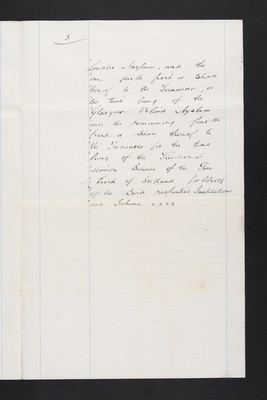 3
Lunatic Asylum, and the
one fourth part or Share
thereof to the Treasurer for
the time being of the
Glasgow Blind Asylum
and the remaining fourth
part or Share thereof to
the Treasurer for the time
being of the
Mission Scheme of the Free
Church of Scotland for behoof
of the said respective Institutions
and Scheme x x x x